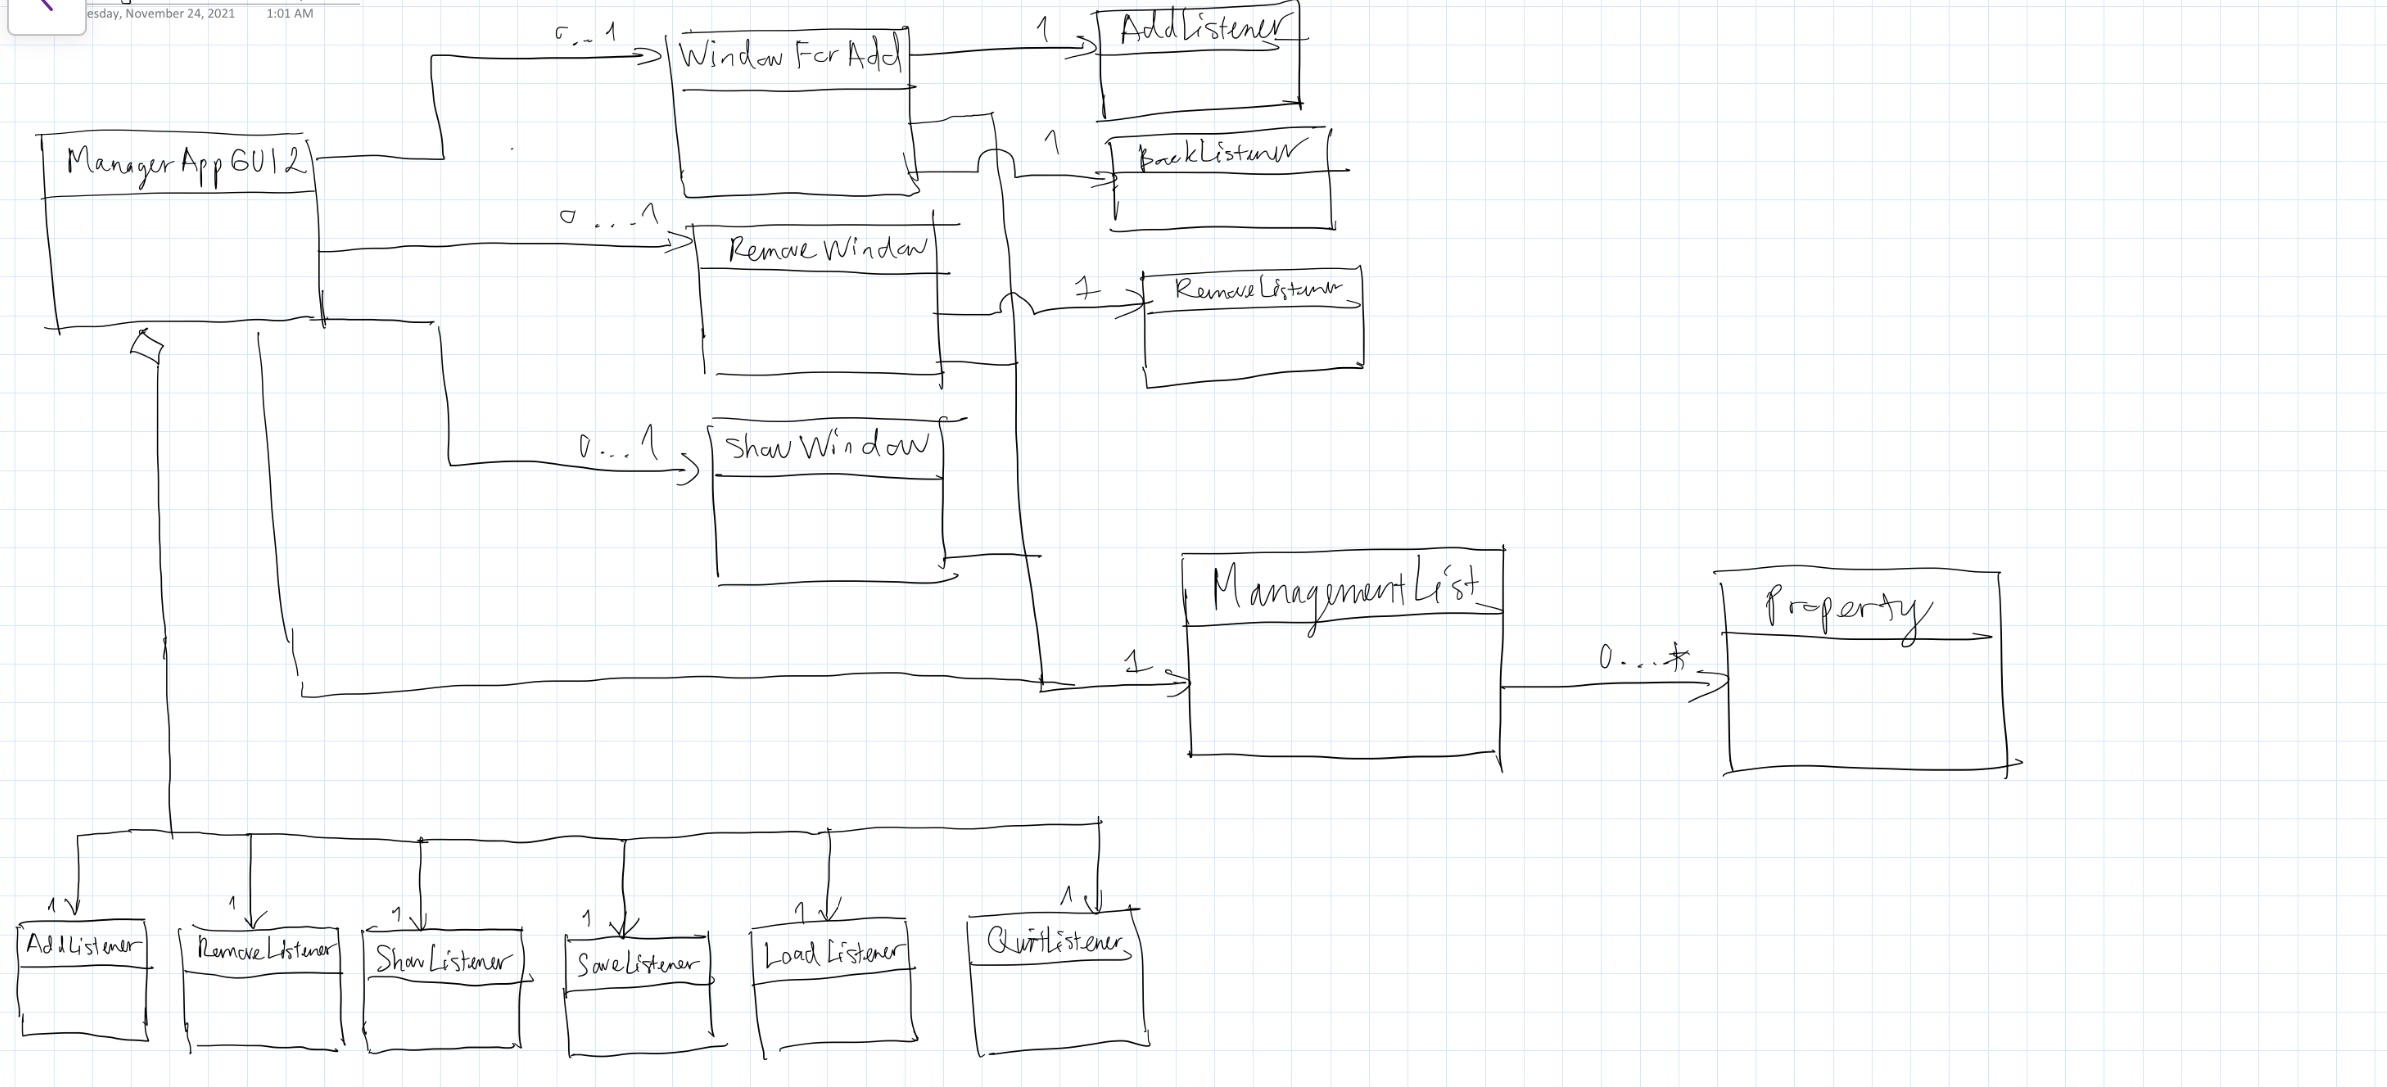 esday, November 24, 2021 1:01 AM
0...1
WindowForAdd
1
AddListener
ManagerAppGUI2
1
BackListener
0....1
RemoveWindow
1
RemoveListener
0...1
ShowWindow
ManagementList
Property
1
0...*
1
1
1
1
1
1
AddListener
RemoveListener
ShowListener
SaveListener
Load Listener
QuitListener